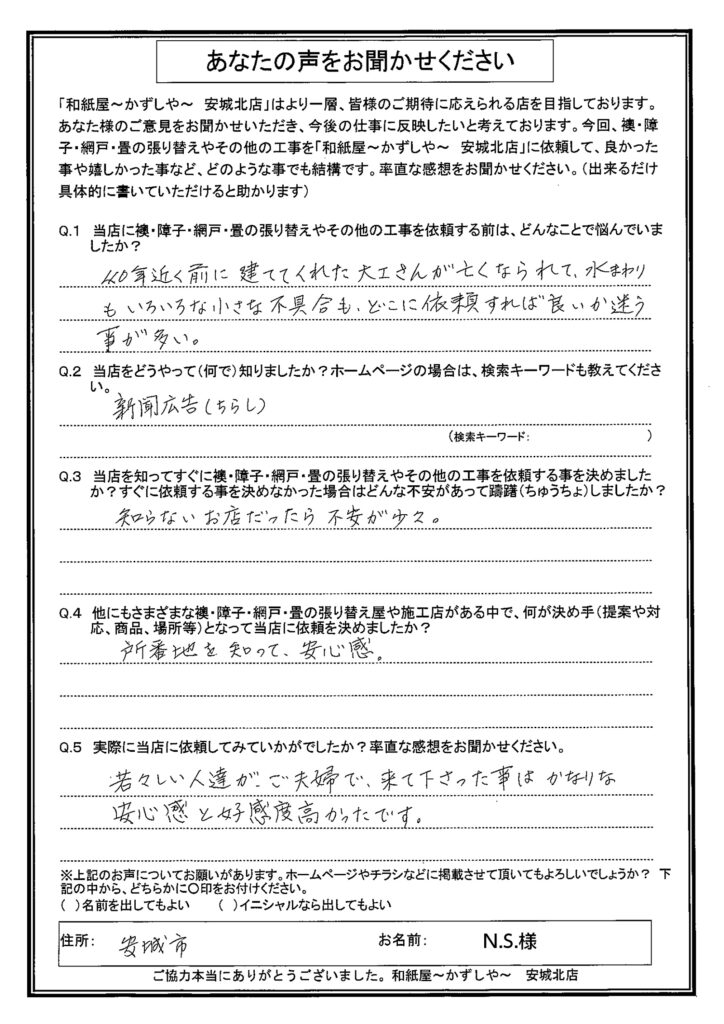 あなたの声をお聞かせください
「和紙屋～かずしや～　安城北店」はより一層、皆様のご期待に応えられる店を目指しております。
あなた様のご意見をお聞かせいただき、今後の仕事に反映したいと考えております。今回、襖・障
子・網戸・畳の張り替えやその他の工事を「和紙屋～かずしや～　安城北店」に依頼して、良かった
事や嬉しかった事など、どのような事でも結構です。率直な感想をお聞かせください。（出来るだけ
具体的に書いていただけると助かります）
Q.1　当店に襖・障子・網戸・畳の張り替えやその他の工事を依頼する前は、どんなことで悩んでいま
したか？
40年近く前に建ててくれた大工さんが亡くなられて、水まわり
もいろいろな小さな不具合も、どこに依頼すれば良いか迷う
事が多い。
Q.2　当店をどうやって（何で）知りましたか？ホームページの場合は、検索キーワードも教えてくださ
い。
新聞広告（ちらし）
（検索キーワード：　　　　　　　　　　）
Q.3　当店を知ってすぐに襖・障子・網戸・畳の張り替えやその他の工事を依頼する事を決めました
か？すぐに依頼する事を決めなかった場合はどんな不安があって躊躇（ちゅうちょ）しましたか？
知らないお店だったら不安が少々。
Q.4　他にもさまざまな襖・障子・網戸・畳の張り替え屋や施工店がある中で、何が決め手（提案や対
応、商品、場所等）となって当店に依頼を決めましたか？
所番地を知って、安心感。
Q.5　実際に当店に依頼してみていかがでしたか？率直な感想をお聞かせください。
若々しい人達が、ご夫婦で、来て下さった事はかなりな
安心感と好感度高かったです。
※上記のお声についてお願いがあります。ホームページやチラシなどに掲載させて頂いてもよろしいでしょうか？　下
記の中から、どちらかに〇印をお付けください。
（　）名前を出してもよい　　（　）イニシャルなら出してもよい
住所：　安城市　　お名前：　N.S.様
ご協力本当にありがとうございました。和紙屋～かずしや～　安城北店